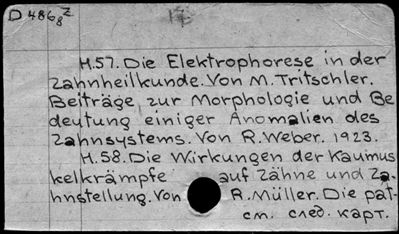 D 4868 z
H.57. Die Elektrophorese in der
Zahnheilkunde. Von M. Tritschler.
Beiträge zur Morphologie und Be
deutung einiger Anomalien des
Zahnsystems. Von R. Weber. 1923.
H.58. Die Wirkungen der Kaumus
kelkrämpfe auf Zähne und Za-
hnstellung. Von R. Müller. Die pat-
см. след. карт.